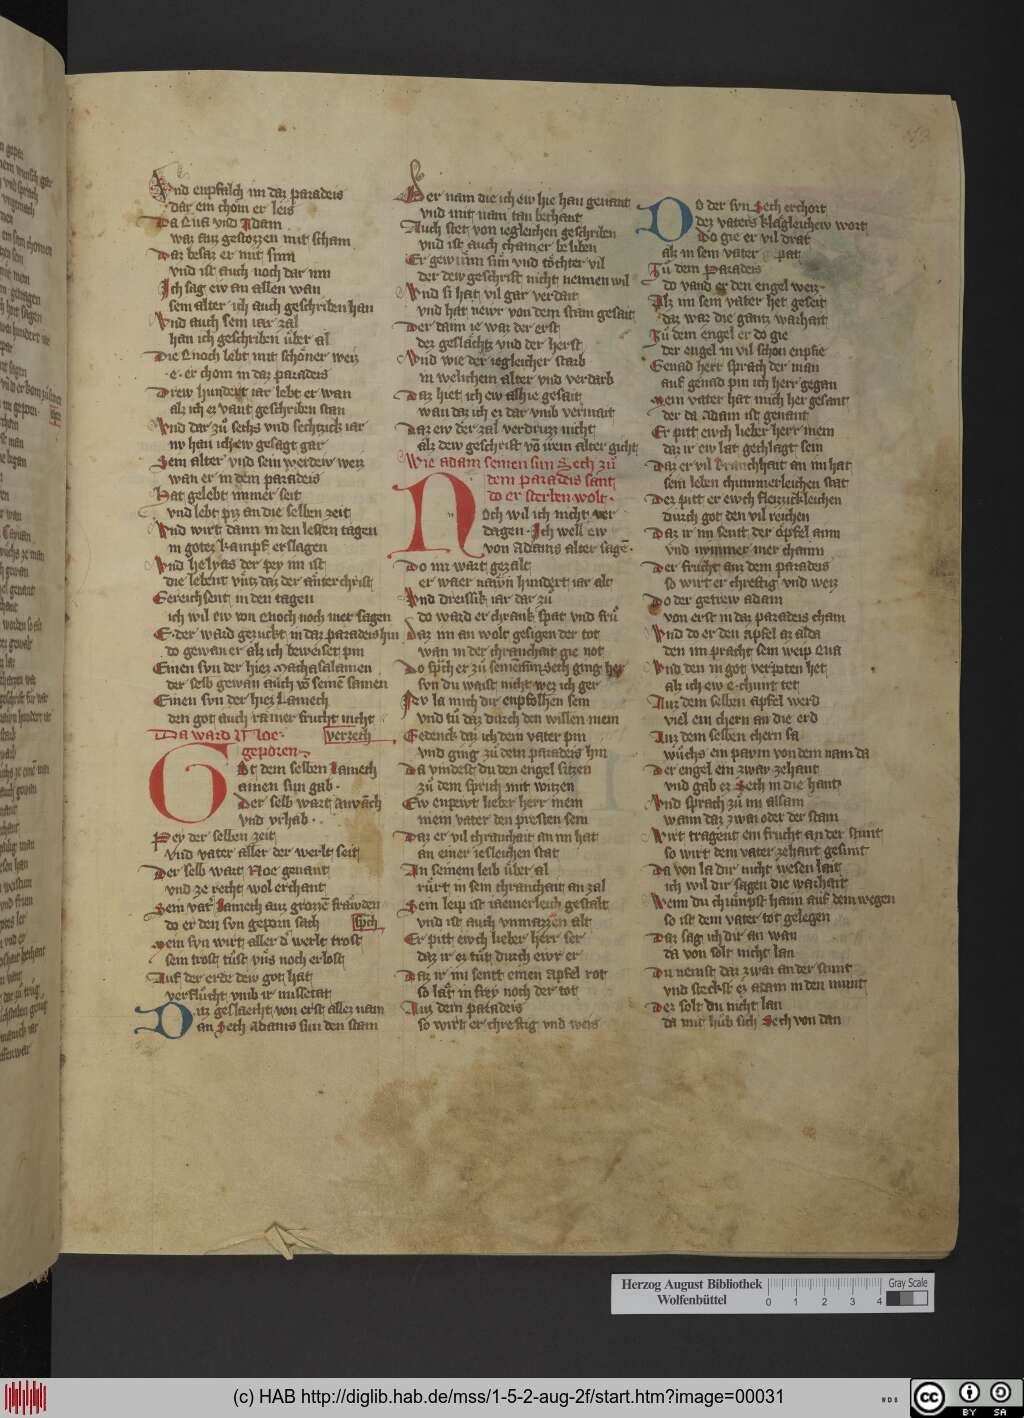 Vnd enpfalch im daz paradeis
daz ein chom er leis
Da Eua vnd Adam
waz auz gestozzen mit scham
Daz besaz er mit sinn
vnd ist auch noch dar inn
Ich sag ew an allen wan
sein alter ich auch geschriben han
Vnd auch sein iar zal
han ich geschriben über al
Die Enoch lebt mit schöner weiz
e er chom in daz paradeis
Drew hundert iar lebt er wan
alz ich ez vant geschriben stan
Vnd dar zů sechs vnd sechtzick iar
nv han ich ew gesagt gar
Sein alter vnd sein werdew weiz
wan er in dem paradeis
Hat gelebt immer seit
vnd lebt piz an die selben zeit
Vnd wirt dann in den lesten tagen
in gotez kampf erslagen
Vnd helyas der pey im ist
die lebent vntz daz der anter christ
Gereichsent in den tagen
ich wil ew von Enoch noch mer sagen
E der ward gezuckt in daz paradeis hin
do gewan er alz ich beweiset pin
Einen svn der hiez Machasalamen
der selb gewan auch vō seinē samen
Einen svn der hiez Lamech
den got auch rainer frucht nicht
verzech
Da ward Noe
geporen
Gt dem selben Lamech
ainen sun gab
Der selb wart anvāch
vnd vrhab
Pey der selben zeit
vnd vater aller der werlt seit
Der selb wart Noe genant
vnd ze recht wol erchant
Sein vat Lamech auz grozzē frawden
do er den svn geporn sach
spch
Mein svn wirt aller d werlt trost
sein trost tůst vns noch erlost
Auf der erde dew got hat
verflücht vmb ir missetat
Ditz geslaecht von erst aller nam
an Sech Adams sun den stam
Der nam die ich ew hie han genant
vnd mit nam tan bechant
Auch stet von iegleichen geschriben
vnd ist auch chainer beliben
Er gewunn sün vnd töchter vil
der dew geschrift nicht nennen wil
Vnd si hat vil gar verdait
vnd hat newr von dem stam gesait
Der dann ie waz der erst
dez geslächtz vnd der herst
Vnd wie der iegleicher starb
in welichem alter vnd verdarb
Daz hiet ich ew alhie gesait
wan daz ich ez dar vmb vermait
Daz ew der zal verdruzz nicht
alz dew geschrift vō irem alter gicht
Wie adam seinen sun Sech zů
dem paradeis sant
do er sterben wolt
Noch wil ich nicht ver
dagen Ich well ew
von Adams alter sagē
Do im wart gezalt
er waer naẅn hundert iar alt
Vnd dreissik iar dar zů
do ward er chrank spat vnd frů
Daz im an wolt gesigen der tot
wan in der chranchait gie not
Do spch er zů seinem sun Sech ging her
svn du waist nicht wez ich ger
Nv la mich dir enpfolhen sein
vnd tů daz durch den willen mein
Gedenck daz ich dein vater pin
vnd ging zů dem paradeis hin
Da vindest du den engel sitzen
zů dem sprich mit witzen
Ew enpewt lieber herr mein
mein vater den presten sein
Daz er vil chranchait an im hat
an einer iesleichen stat
An seinem leib über al
rürt in sein chranchait an zal
Sein leip ist iaemerleich gestalt
vnd ist auch vnmazzen alt
Er pitt ewch lieber herr ser
daz ir ez tüt durch ewr er
Daz ir im sentt einen apfel rot
so lazt in frey noch der tot
Auz dem paradeis
so wirt er chreftig vnd weis
Do der svn Sech erchort
dez vaters klagleichew wort
Do gie er vil drat
alz in sein vater pat
Zů dem Paradeis
do vand er den engel weiz
Alz im sein vater het geseit
daz waz die gantz warhait
Zů dem engel er do gie
der engel in vil schon enpfie
Genad herr sprach der man
auf genad pin ich herr gegan
Mein vater hat mich her gesant
der da Adam ist genant
Er pitt ewch lieber herr mein
daz ir ew lat geclagt sein
Daz er vil kranchhait an im hat
sein leben chummerleichen stat
Dez pitt er ewch fleizzickleichen
durch got den vil reichen
Daz ir im sent der öpfel ainn
vnd nymmer mer chainn
Der frücht auz dem paradeis
so wirt er chreftig vnd weiz
Do der getrew adam
von erst in daz paradeis cham
Vnd do er den apfel az alda
den im pracht sein weip Eua
Vnd den in got verpoten het
alz ich ew e chunt tet
Auz dem selben apfel werd
viel ein chern an die erd
Auz dem selben chern sa
wüchs ein pavm von dem nam da
Der engel ein zway zehant
vnd gab er Sech in die hant
Vnd sprach zů im alsam
wann daz zwai oder der stam
Wirt tragent ein frucht an der stunt
so wirt dem vater zehant gesunt
Da von la dir nicht wesen lait
ich wil dir sagen die warhait
Wenn du ch ümpst haim auf dem wegen
so ist dein vater tot gelegen
Daz sag ich dir an wan
da von solt nicht lan
Du nemst daz zwai an der stunt
vnd steckst ez adam in den munt
Dez solt du nicht lan
da mit hůb sich Sech von dan
Herzog August Bibliothek
Wolfenbüttel
0 1 2 3 4
Gray Scale
(c) HAB http://diglib.hab.de/mss/1-5-2-aug-2f/start.htm?image=00031
WDB
cc
BY SA